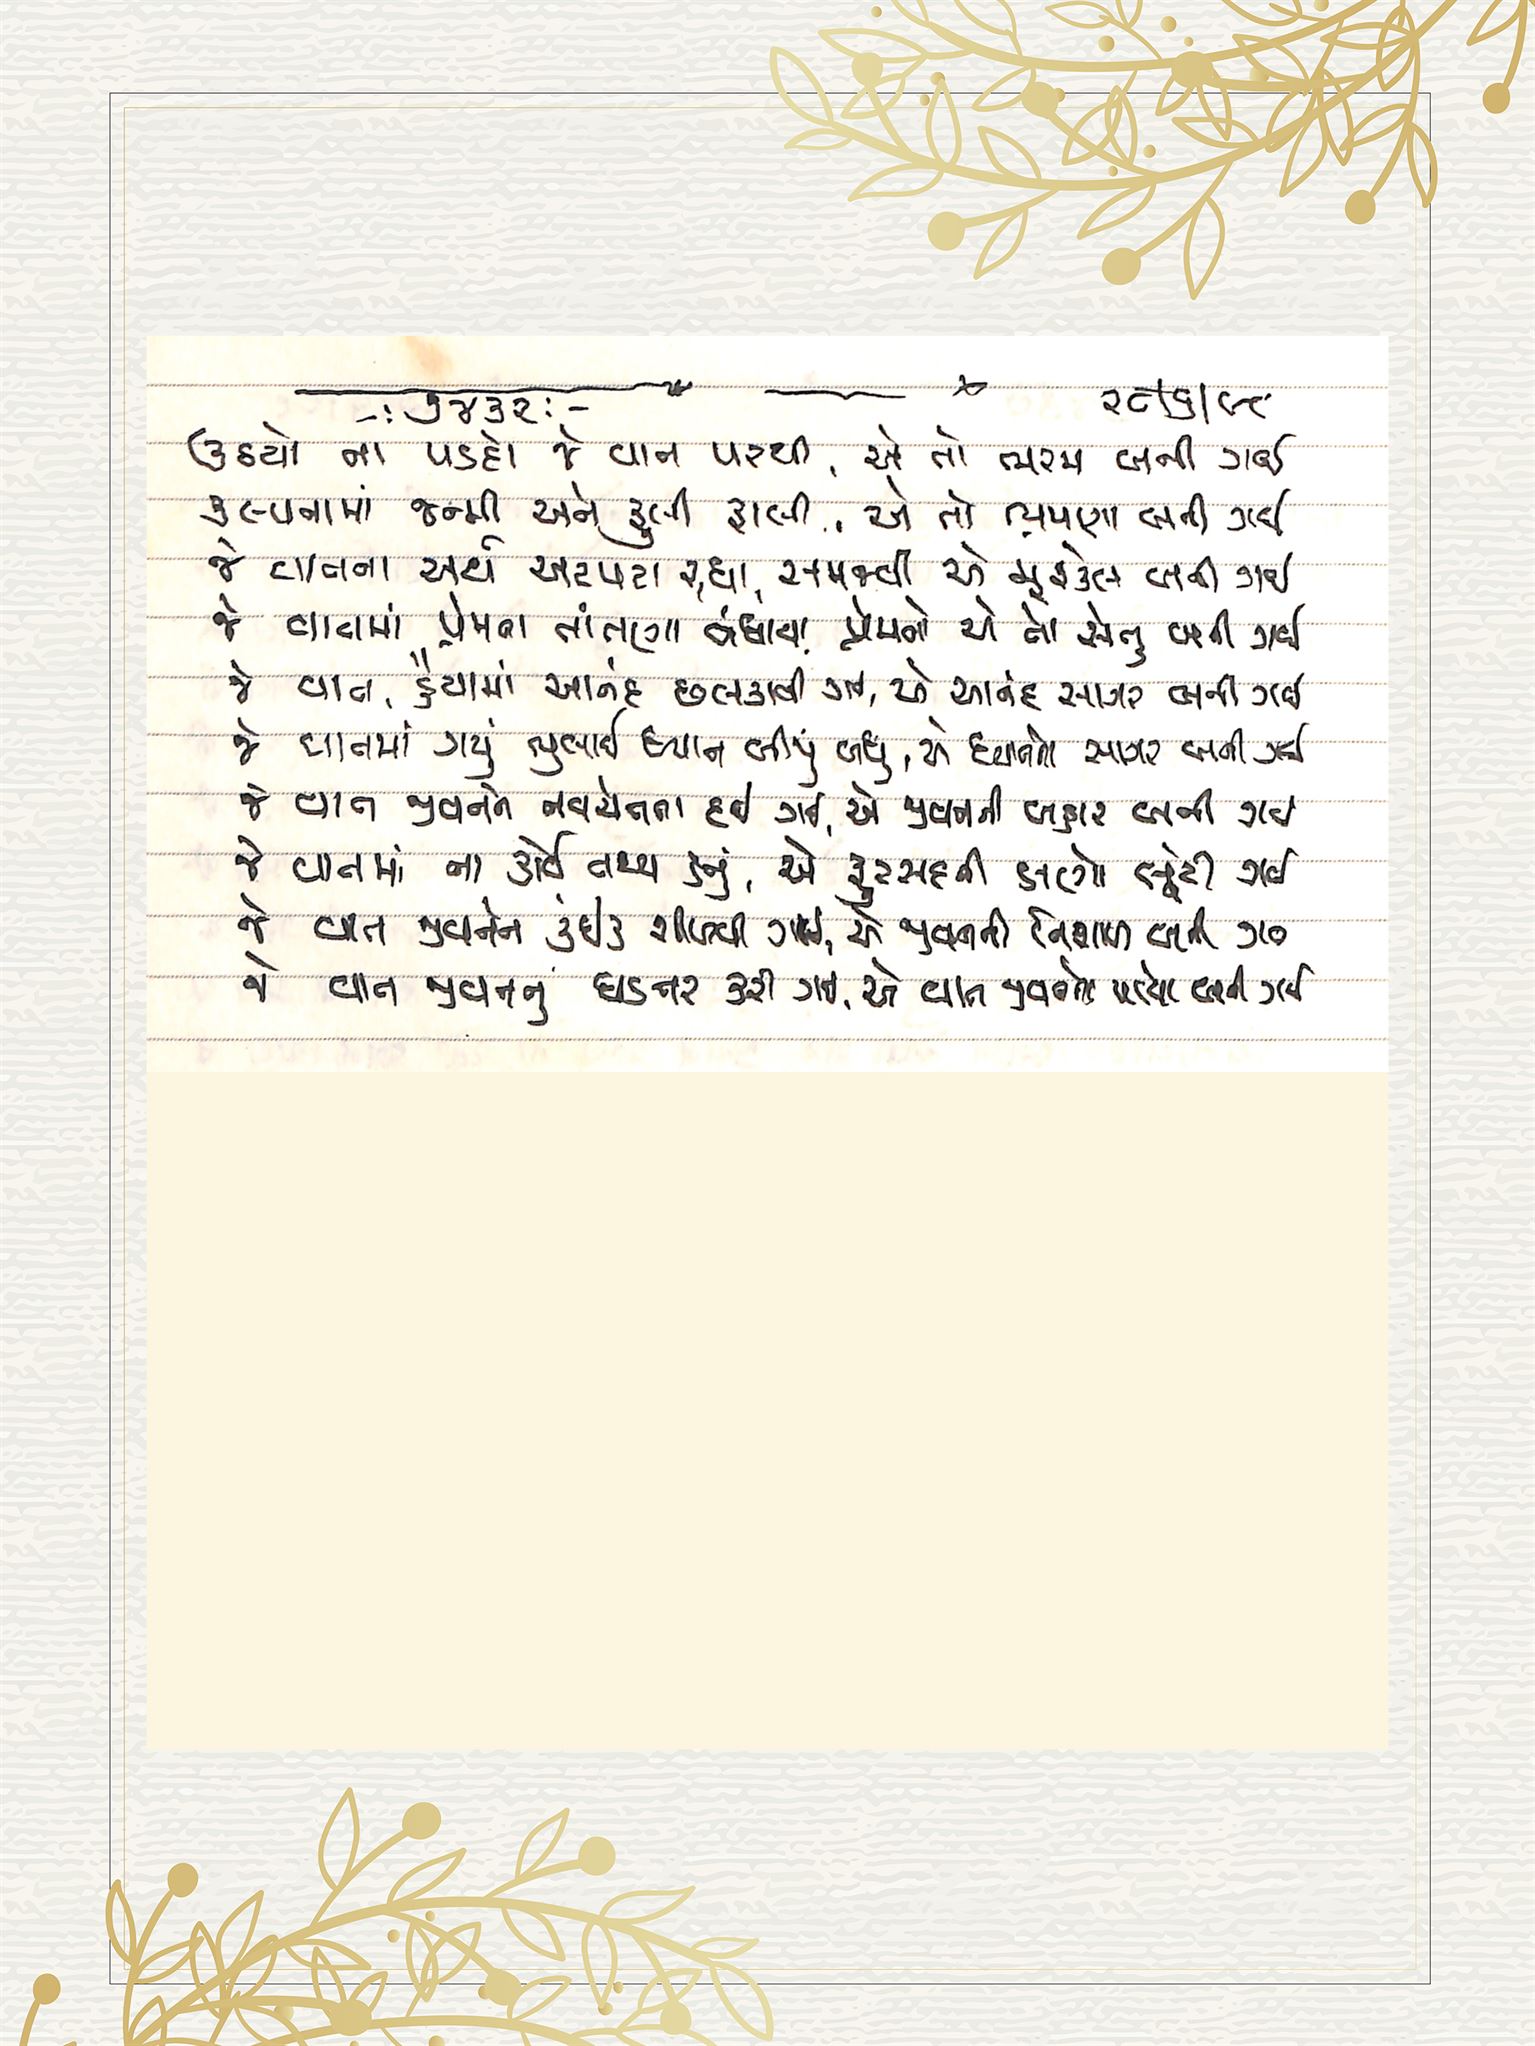 ઉઠયો ના પડદો જે વાત પરથી, એ તો ભરમ બની ગઈ
કલ્પનામાં જન્મી અને ફુલી ફાલી, એ તો ભ્રમણા બની ગઈ
જે વાતના અર્થ અટપટા રહ્યા, સમજવી એ મુશ્કેલ બની ગઈ
જે વાતમાં પ્રેમના તાંતણા બંધાયા, પ્રેમનો એ તો સેતુ બની ગઈ
જે વાત, હૈયામાં આનંદ છલકાવી ગઈ, એ આનંદ સાગર બની ગઈ
જે વાતમાં ગયું ભુલાઈ ધ્યાન બીજું બધુ, એ ધ્યાનનો સાગર બની ગઈ
જે વાત જીવનને નવચેતના દઈ ગઈ, એ જીવનની બહાર બની ગઈ
જે વાતમાં ના કોઈ તથ્ય હતું, એ ફુરસદની ક્ષણો લૂંટી ગઈ
જે વાત જીવનને કંઈક શીખવી ગઈ, એ જીવનની નિશાળ બની ગઈ
જે વાત જીવનનું ઘડતર કરી ગઈ, એ વાત જીવનનો બની ગઈ